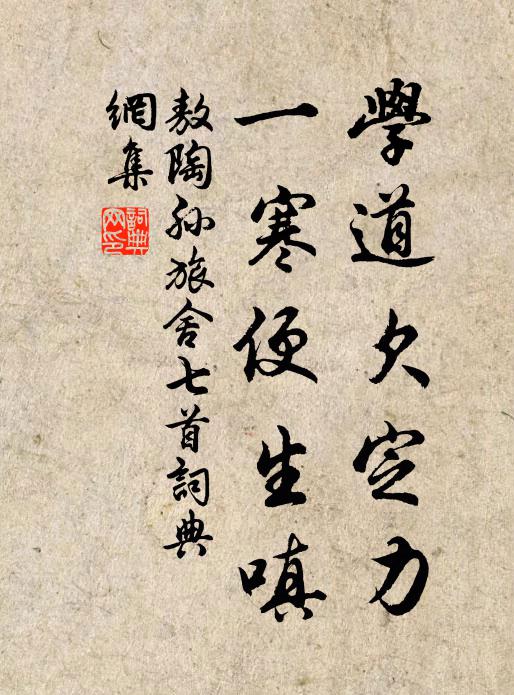 學道欠定力
一寒便生嗔
敖陶孫旅舍七首詞典
網集
詞典網印